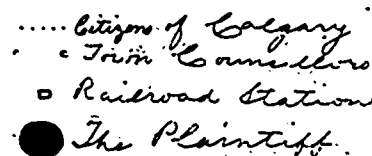 ..... Citizens of Calgary
Town Councillors
Railroad Station
The Plaintiff